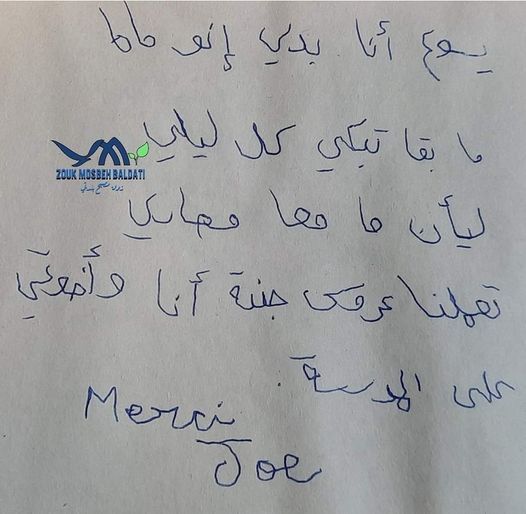 يسوع أنا بدي إنو ماما
ما بقا تبكي كل ليلي
ZOUK MOSBEH BALDATI
ذوق مصبح بلدتي
ليأن ما معا مصاري
تعملنا عروسة جبنة أنا وأخوتي
على المدرسة
Merci
Joe